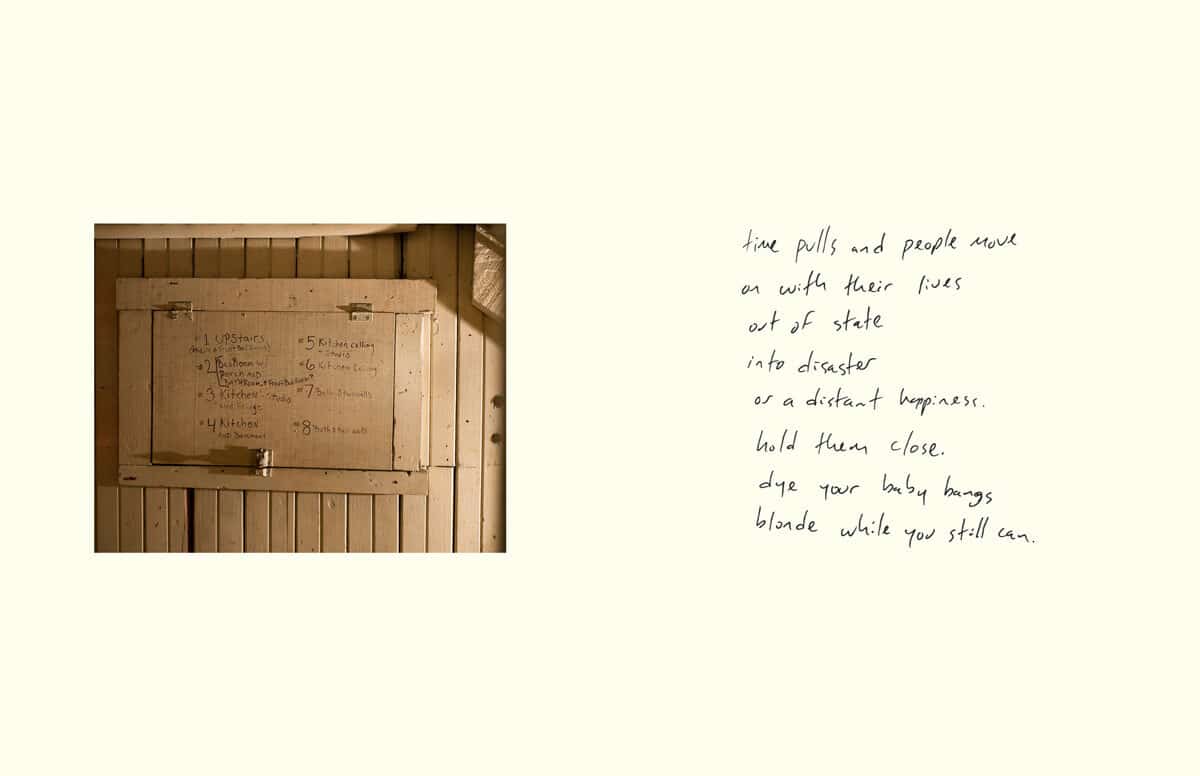 #1 UPStairs
#2 Bedroom w/
Porch AND
BATHRoom + Front Bedroom
#3 Kitchen - Studio
AND Fridge
#4 Kitchen
AND Basement
#5 Kitchen Ceiling
"Studio"
#6 Kitchen Ceiling
#7 Both Stairwells
#8 Both stairwells
time pulls and people move
on with their lives
out of state
into disaster
or a distant happiness.
hold them close.
dye your baby bangs
blonde while you still can.